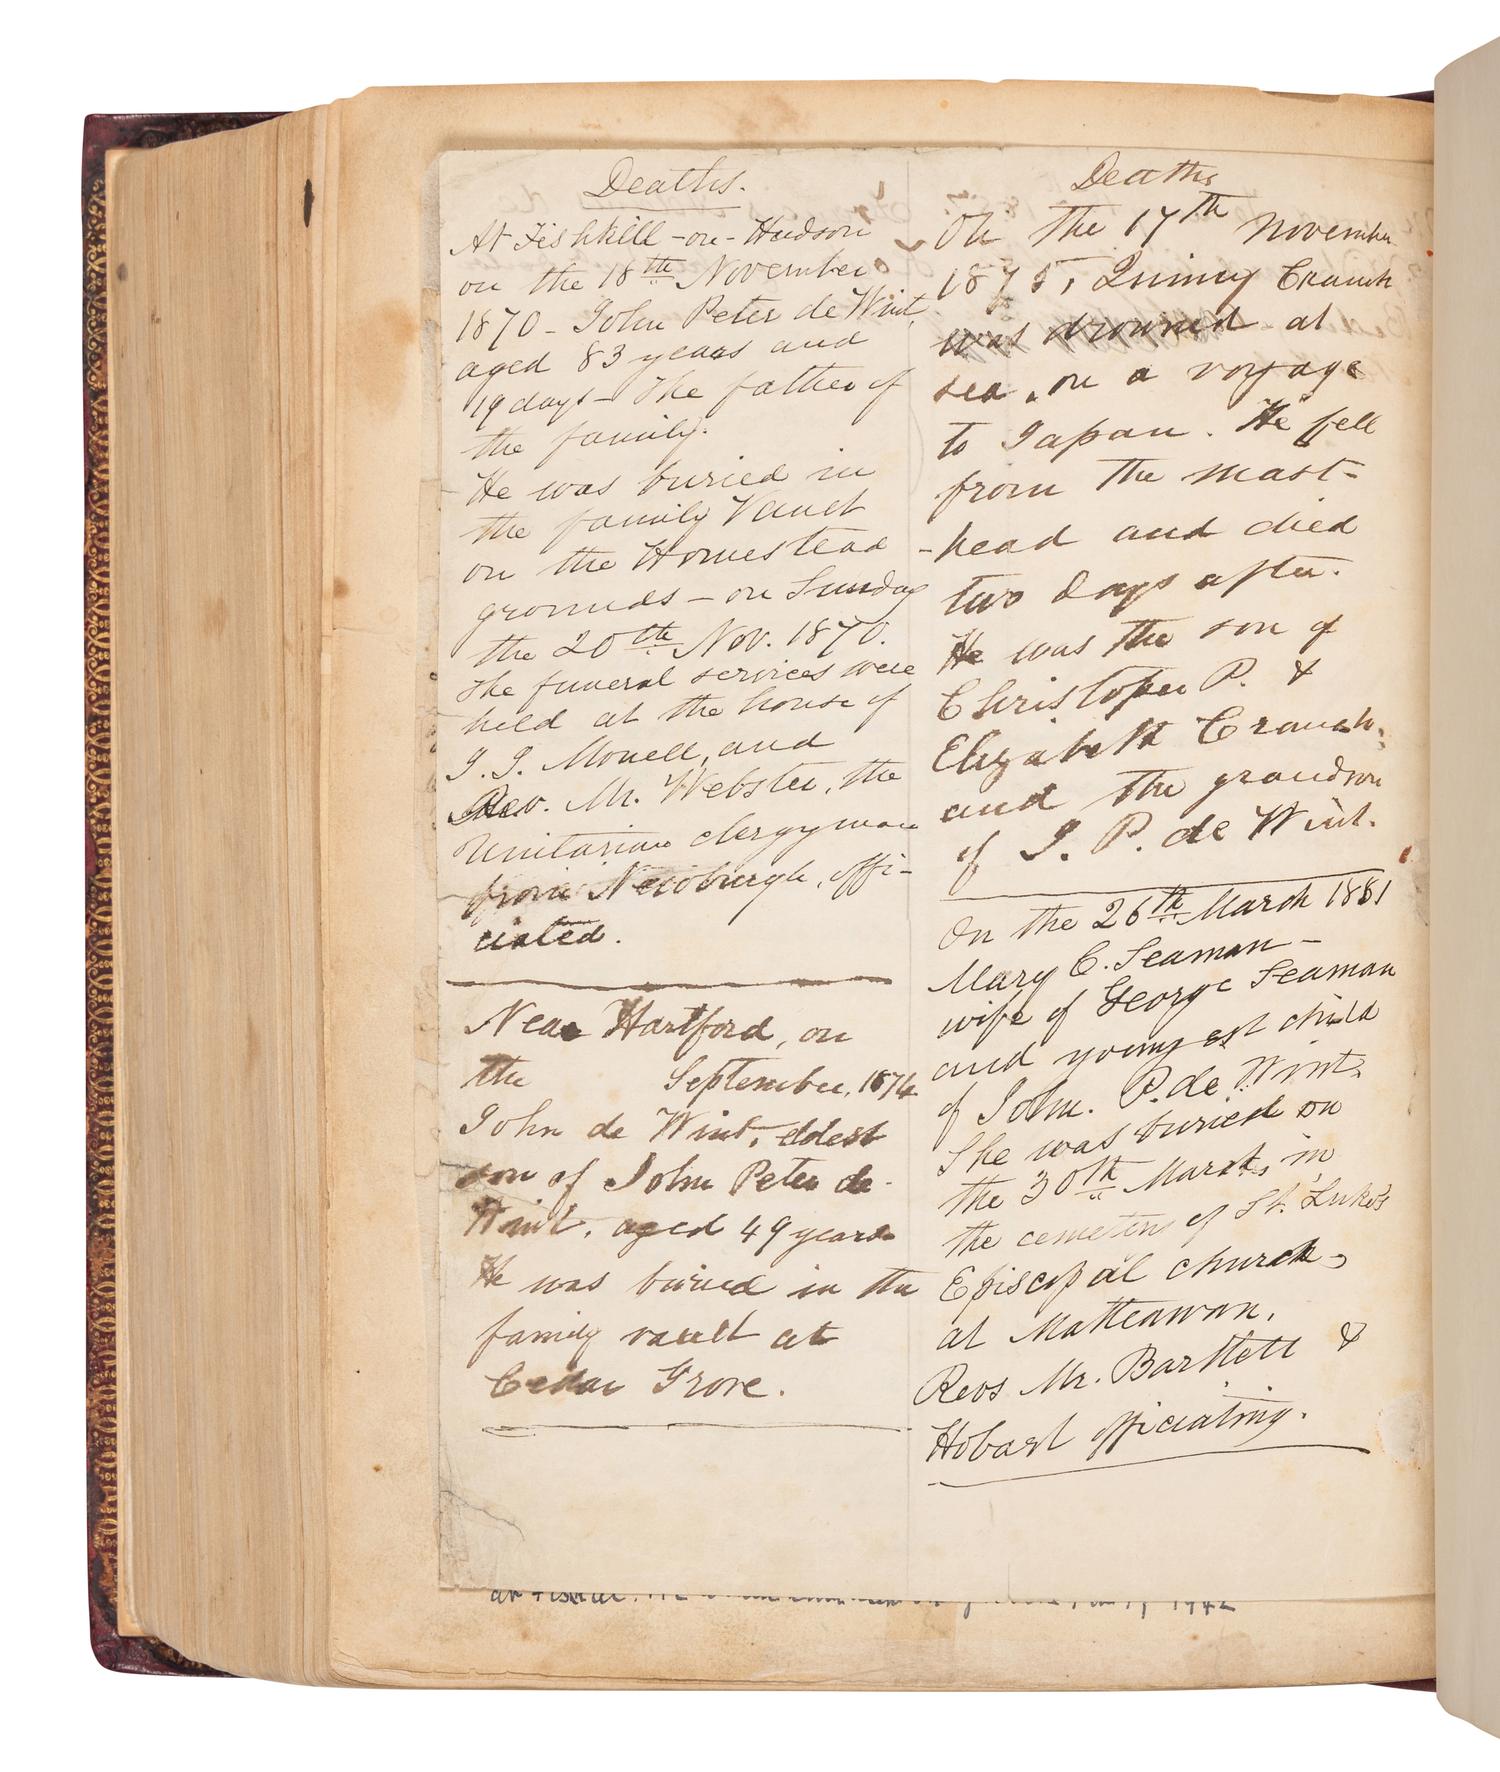 Deaths.
At Fishkill-on-Hudson
on the 18th November
1870 - John Peter de Wint,
aged 83 years and
19 days - The father of
the family.
He was buried in
the family Vault
on the Homestead
grounds - on Sunday
the 20th Nov. 1870.
The funeral services were
held at the house of
J. J. Monell, and
Rev. Mr. Webster, the
Unitarian clergyman
from Newburgh, offi-
ciated.
Near Hartford, on
the September, 1874
John de Wint, eldest
son of John Peter de
Wint, aged 49 years
He was buried in the
family vault at
Cedar Grove.
Deaths
On the 17th November
1875, Quincy Cranch
was drowned at
sea, on a voyage
to Japan. He fell
from the mast-
-head and died
two days after.
He was the son of
Christopher P. &
Elizabeth Cranch,
and the grandson
of J. P. de Wint.
On the 26th March 1881
Mary C. Seaman -
wife of George Seaman
and youngest child
of John. P. de Wint.
She was buried on
the 30th March, in
the cemetery of St. Luke's
Episcopal church,
at Matteawan.
Revs Mr. Bartlett &
Hobart officiating.
1942